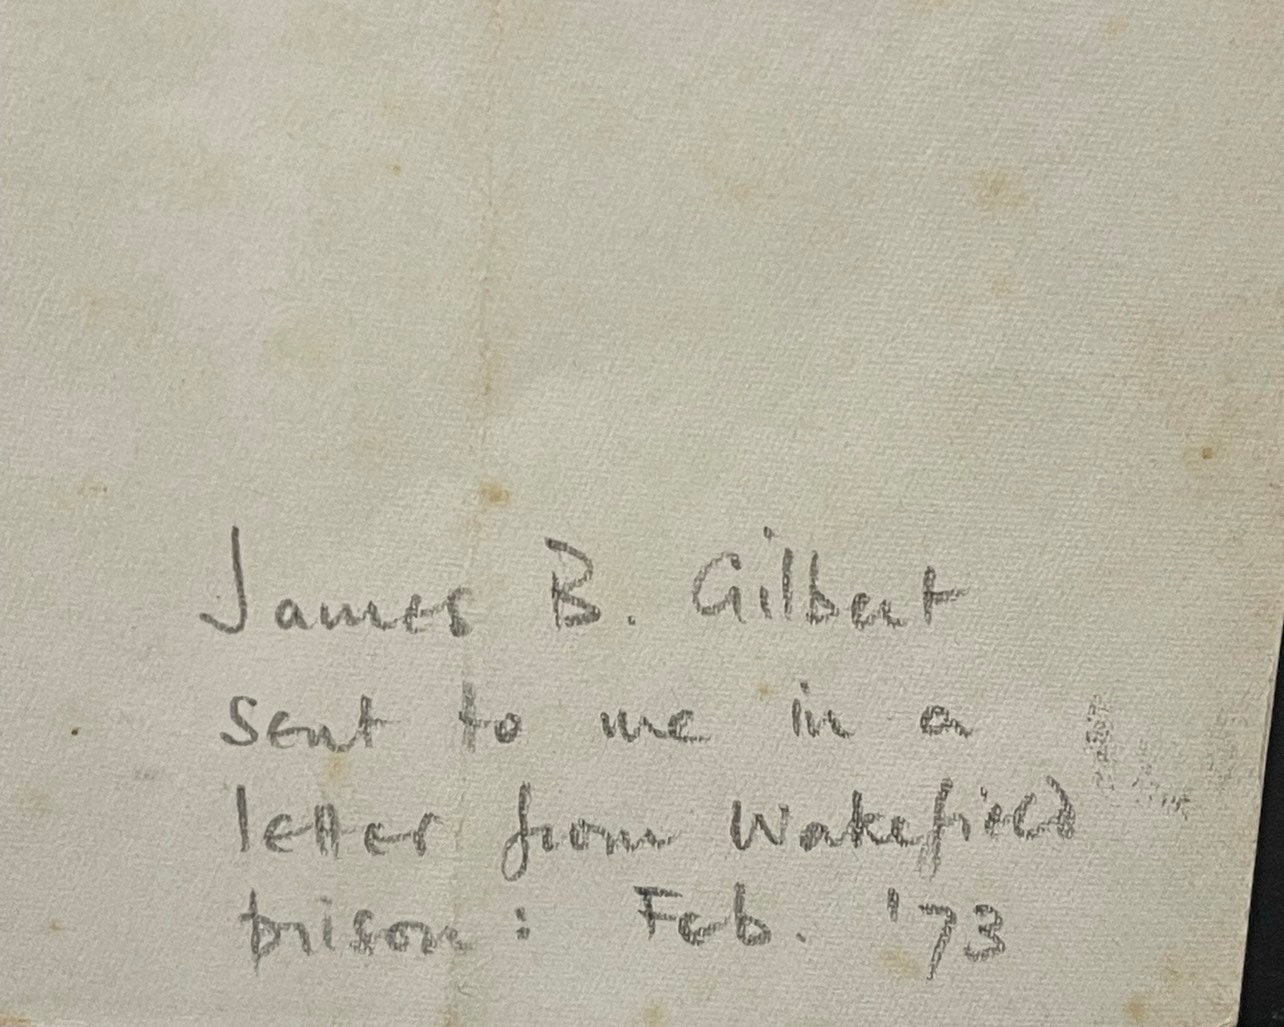 James B. Gilbert
sent to me in a
letter from Wakefield
prison : Feb. '73